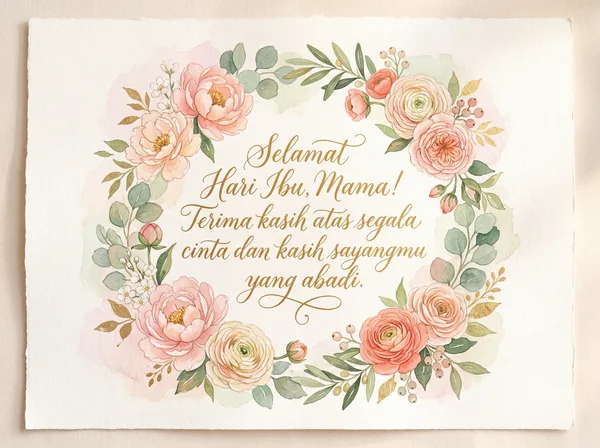 Selamat
Hari Ibu, Mama!
Terima kasih atas segala
cinta dan kasih sayangmu
yang abadi.